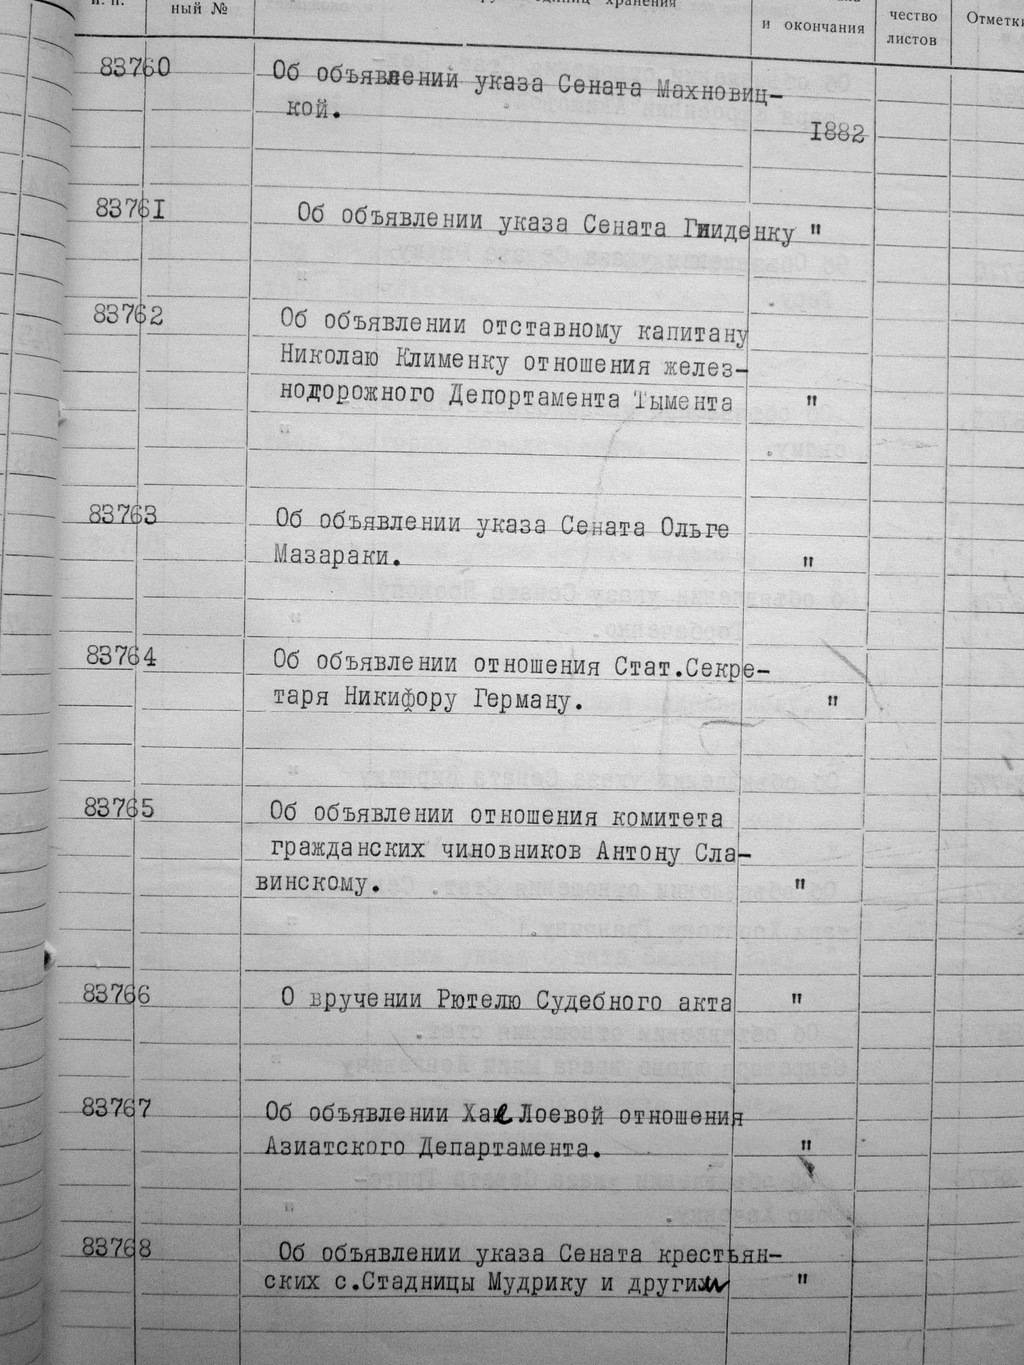 п. п.
ный №
единиц хранения
и окончания
чество
листов
Отметки
83760
Об объявлений указа Сената Махновиц-
кой.
1882
83761
Об объявлении указа Сената Гниденку "
83762
Об объявлении отставному капитану
Николаю Клименку отношения желез-
нодорожного Депортамента Тымента "
"
83763
Об объявлении указа Сената Ольге
Мазараки. "
83764
Об объявлении отношения Стат.Секре-
таря Никифору Герману. "
83765
Об объявлении отношения комитета
гражданских чиновников Антону Сла-
винскому. "
83766
О вручении Рютелю Судебного акта "
83767
Об объявлении Хае Лоевой отношения
Азиатского Департамента. "
83768
Об объявлении указа Сената крестьян-
ских с.Стадницы Мудрику и другим "